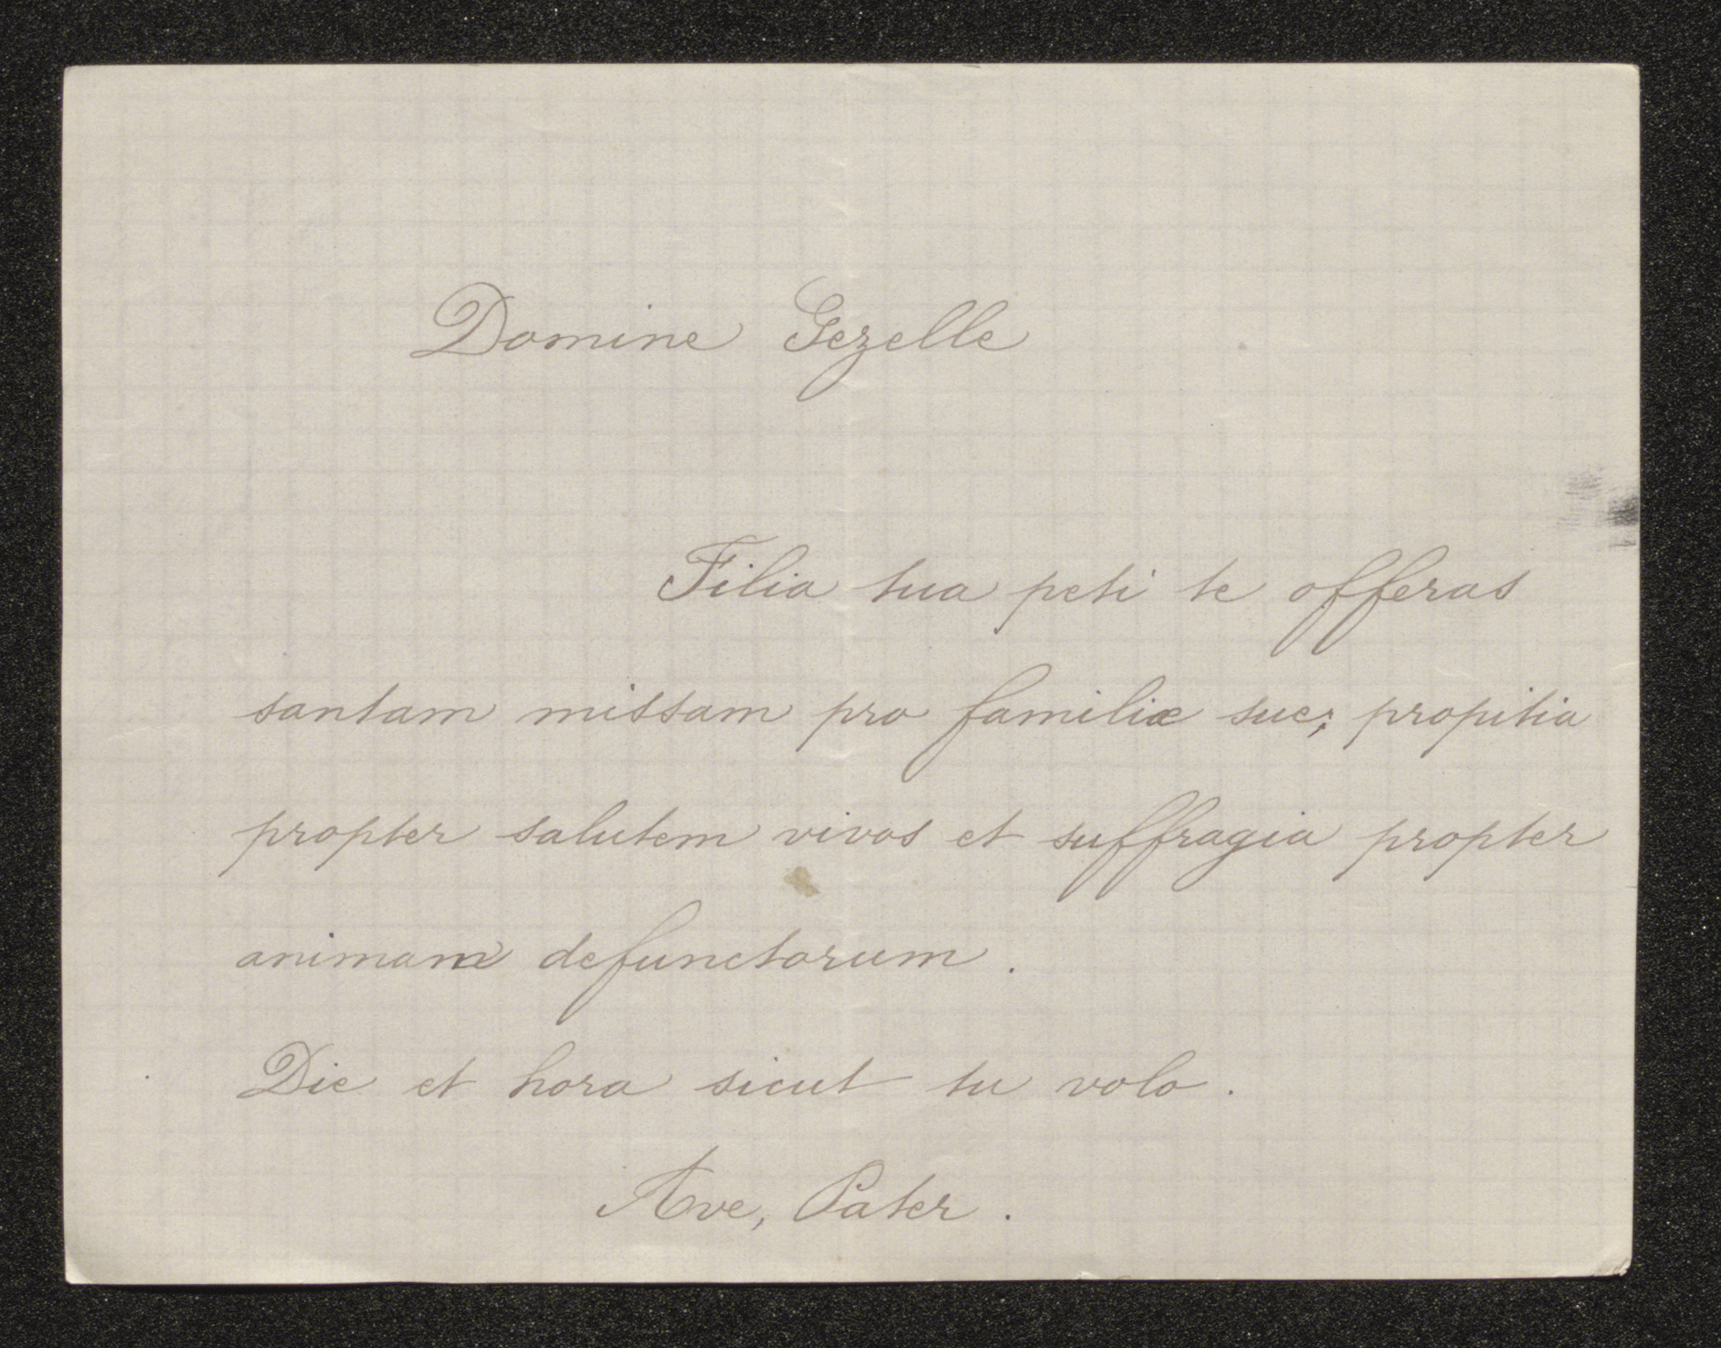 Domine Gezelle
Filia tua peti te offeras
santam missam pro familiæ sue; propitia
propter salutem vivos et suffragia propter
animam defunctorum.
Die et hora sicut tu volo.
Ave, Pater.